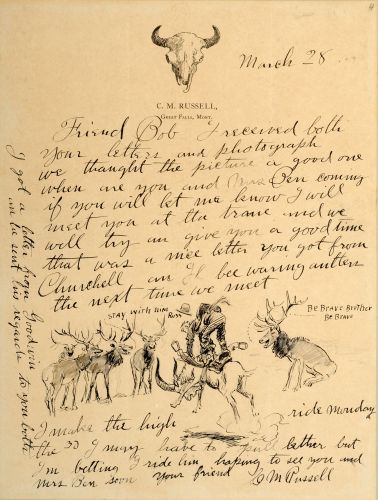 March 28
C. M. RUSSELL,
GREAT FALLS, MONT.
Friend Bob I received both
your letters and photograph
we thaught the picture a good one
when are you and Mrs Ben coming
if you will let me know I will
meet you at the trane and we
will try an give you a good time
that was a nice letter you got from
Churchell an Il bee waring antlers
the next time we meet
STAY WITH HIM
Russ
BE BRAVE BROTHER
BE BRAVE
I make the high ride Monday
the 33 I may have to leather but
I'm betting I ride him hoping to see you and
Mrs Ben soon your friend
C M Russell
I got a letter from Goodwin
an he sent his regards to you both